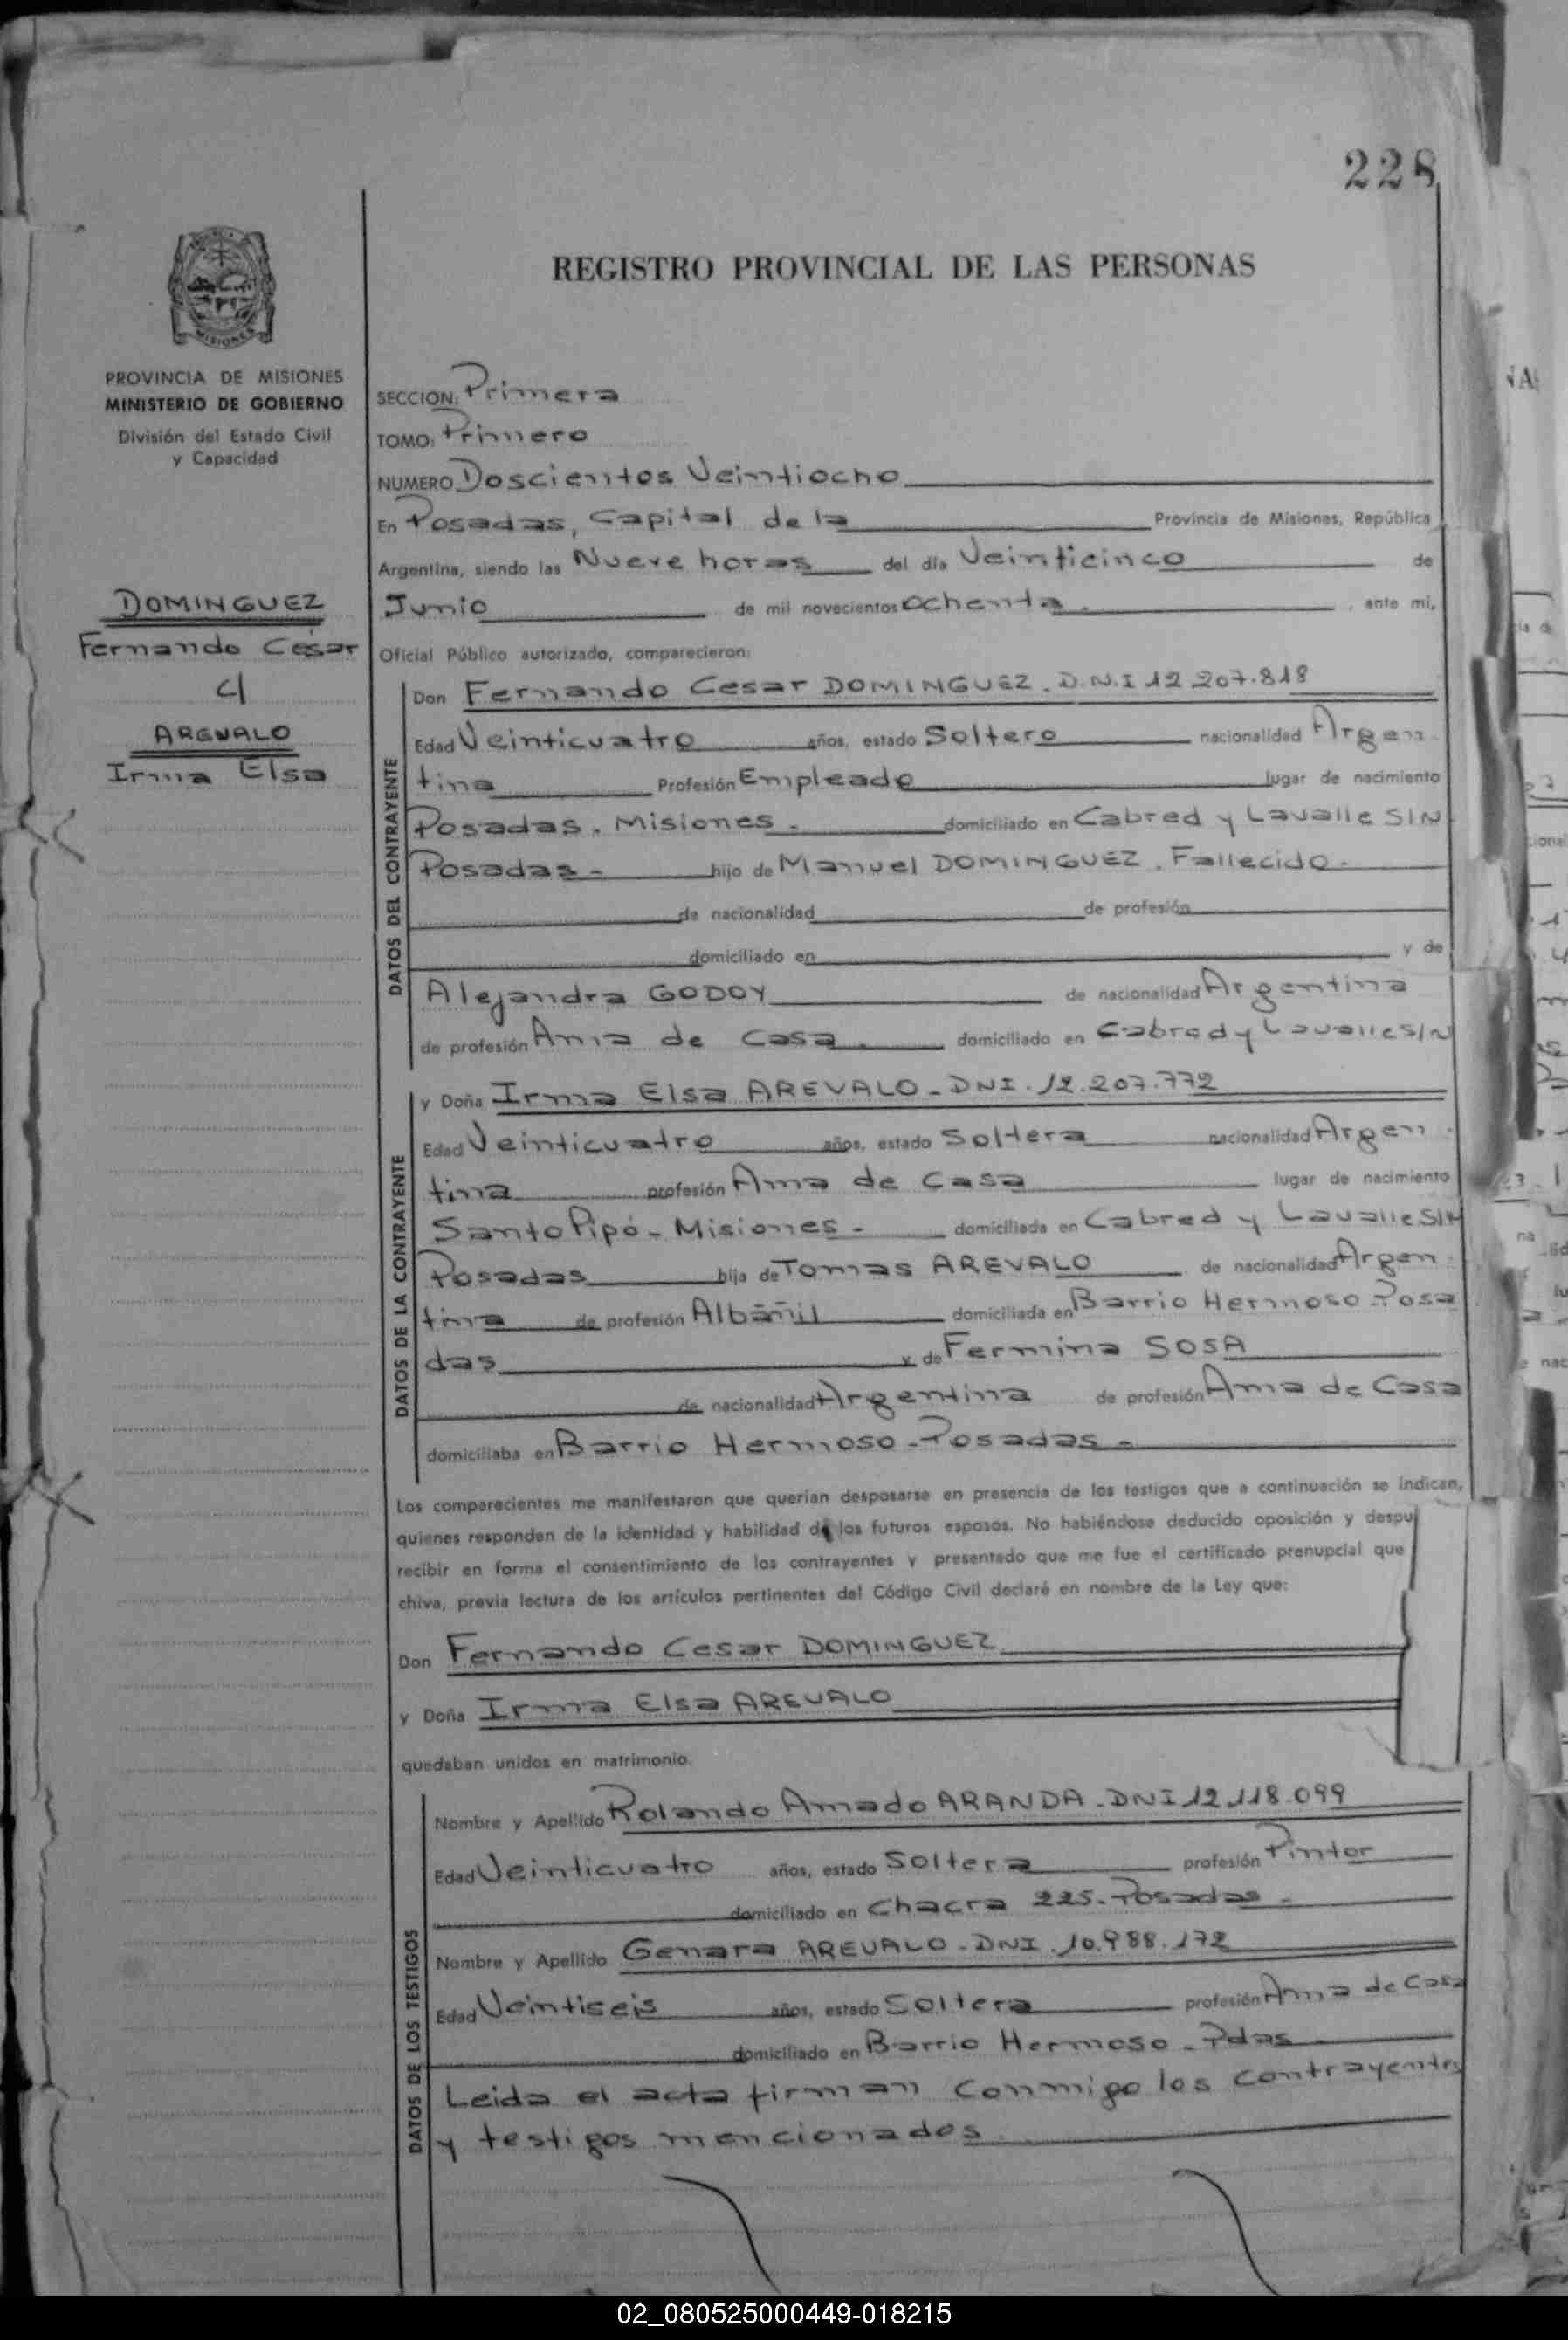 228
REGISTRO PROVINCIAL DE LAS PERSONAS
MISIONES
PROVINCIA DE MISIONES
MINISTERIO DE GOBIERNO
División del Estado Civil
y Capacidad
DOMINGUEZ
Fernando César
c/
AREVALO
Irma Elsa
SECCION: Primera
TOMO: Primero
NUMERO Doscientos Veintiocho
En Posadas, Capital de la Provincia de Misiones, República
Argentina, siendo las Nueve horas del día Veinticinco de
Junio de mil novecientos ochenta. ante mi,
Oficial Público autorizado, comparecieron:
DATOS DEL CONTRAYENTE
Don Fernando Cesar DOMINGUEZ. D.N.I 12.207.818
Edad Veinticuatro años, estado Soltero nacionalidad Argen
tina Profesión Empleado lugar de nacimiento
Posadas. Misiones. domiciliado en Cabred y Lavalle S/N
Posadas- hijo de Manuel DOMINGUEZ. Fallecido.
de nacionalidad de profesión
domiciliado en y de
Alejandra GODOY de nacionalidad Argentina
de profesión Ama de Casa. domiciliado en Cabred y Lavalle S/N
DATOS DE LA CONTRAYENTE
y Doña Irma Elsa AREVALO - DNI. 12.207.772
Edad Veinticuatro años, estado Soltera nacionalidad Argen
tina profesión Ama de Casa lugar de nacimiento
Santo Pipó - Misiones - domiciliada en Cabred y Lavalle S/N
Posadas hija de Tomas AREVALO de nacionalidad Argen
tina de profesión Albañil domiciliada en Barrio Hermoso-Posa
das y de Fermina SOSA
de nacionalidad Argentina de profesión Ama de Casa
domiciliaba en Barrio Hermoso - Posadas -
Los comparecientes me manifestaron que querían desposarse en presencia de los testigos que a continuación se indican,
quienes responden de la identidad y habilidad de los futuros esposos. No habiéndose deducido oposición y despu
recibir en forma el consentimiento de los contrayentes y presentado que me fue el certificado prenupcial que
chiva, previa lectura de los artículos pertinentes del Código Civil declaré en nombre de la Ley que:
Don Fernando Cesar DOMINGUEZ
y Doña Irma Elsa AREVALO
quedaban unidos en matrimonio.
DATOS DE LOS TESTIGOS
Nombre y Apellido Rolando Amado ARANDA - DNI 12.118.099
Edad Veinticuatro años, estado Soltera profesión Pintor
domiciliado en Chacra 225 - Posadas -
Nombre y Apellido Genara AREVALO - DNI. 10.988.172
Edad Veintiseis años, estado Soltera profesión Ama de Casa
domiciliado en Barrio Hermoso - Pdas
Leida el acta firman conmigo los contrayentes
y testigos mencionados
02_080525000449-018215